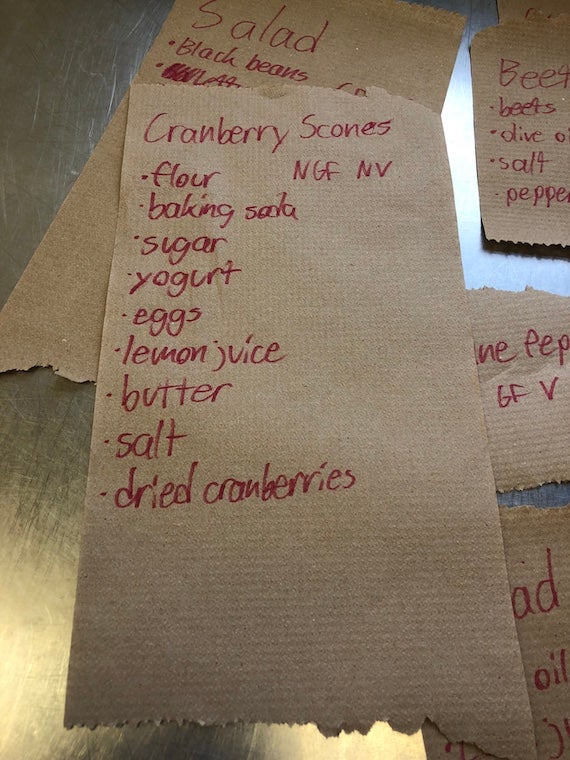 Salad
•Black beans
•
Cranberry Scones
•flour NGF NV
•baking soda
•sugar
•yogurt
•eggs
•lemon juice
•butter
•salt
•dried cranberries
Beet
•beets
•olive oi
•salt
•pepper
ne Pep
GF V
ad
oil